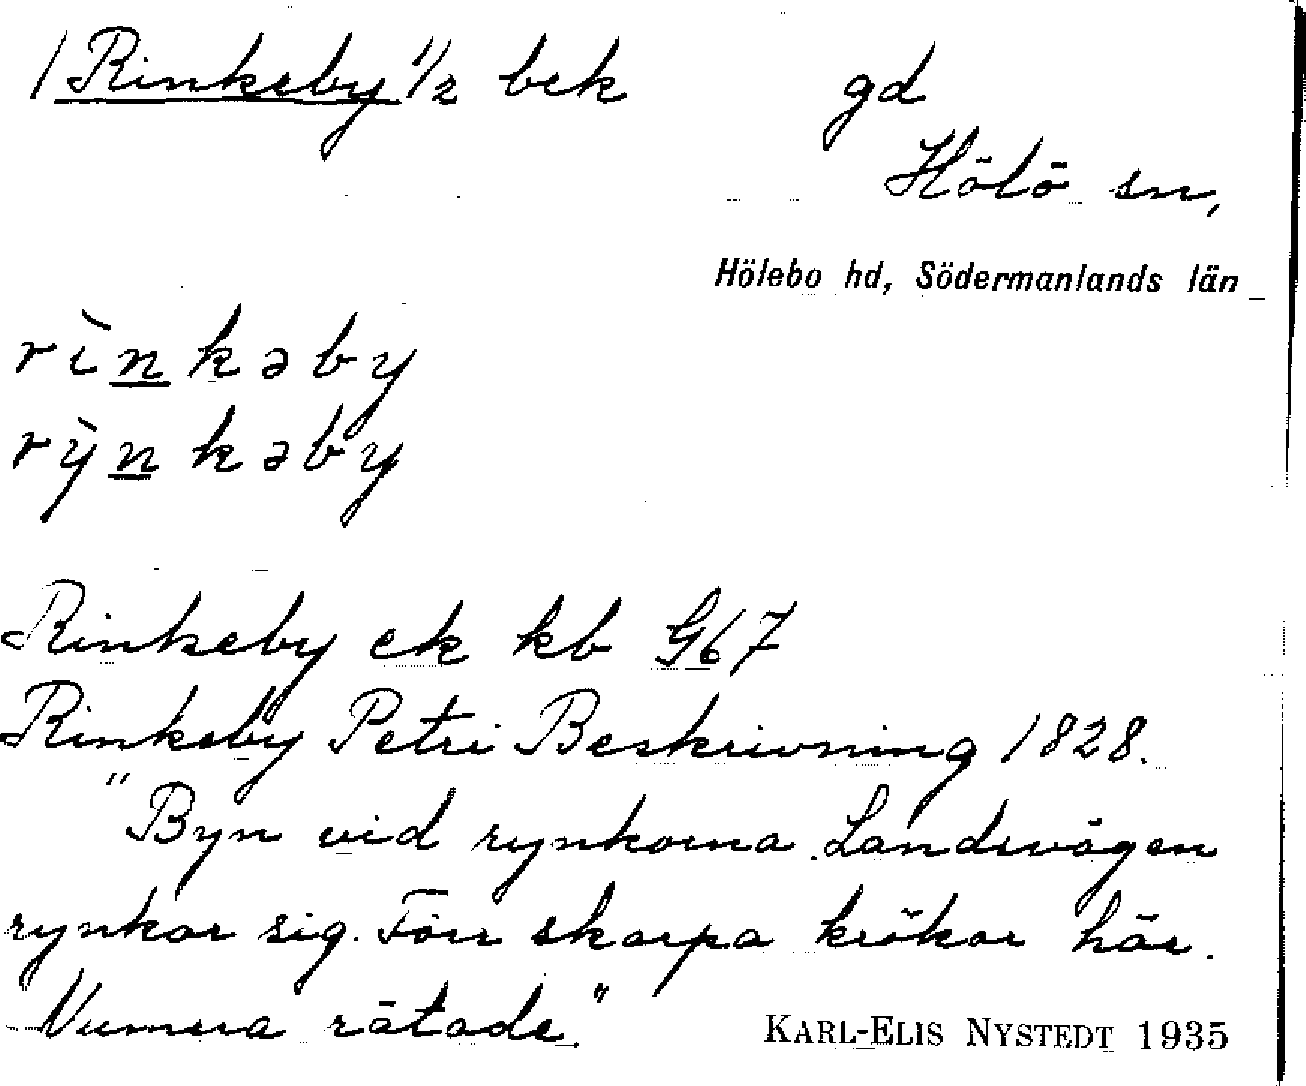 / Rinkeby 1/2 bek gd
Hölö sn,
Hölebo hd, Södermanlands län
rìnkəby
rỳnkəby
Rinkeby ek kb G67
Rinkeby Petri Beskrivning 1828.
"Byn vid rynkorna. Landsvägen
rynkar sig. Förr skarpa krökar här.
Numera rätade."
KARL-ELIS NYSTEDT 1935